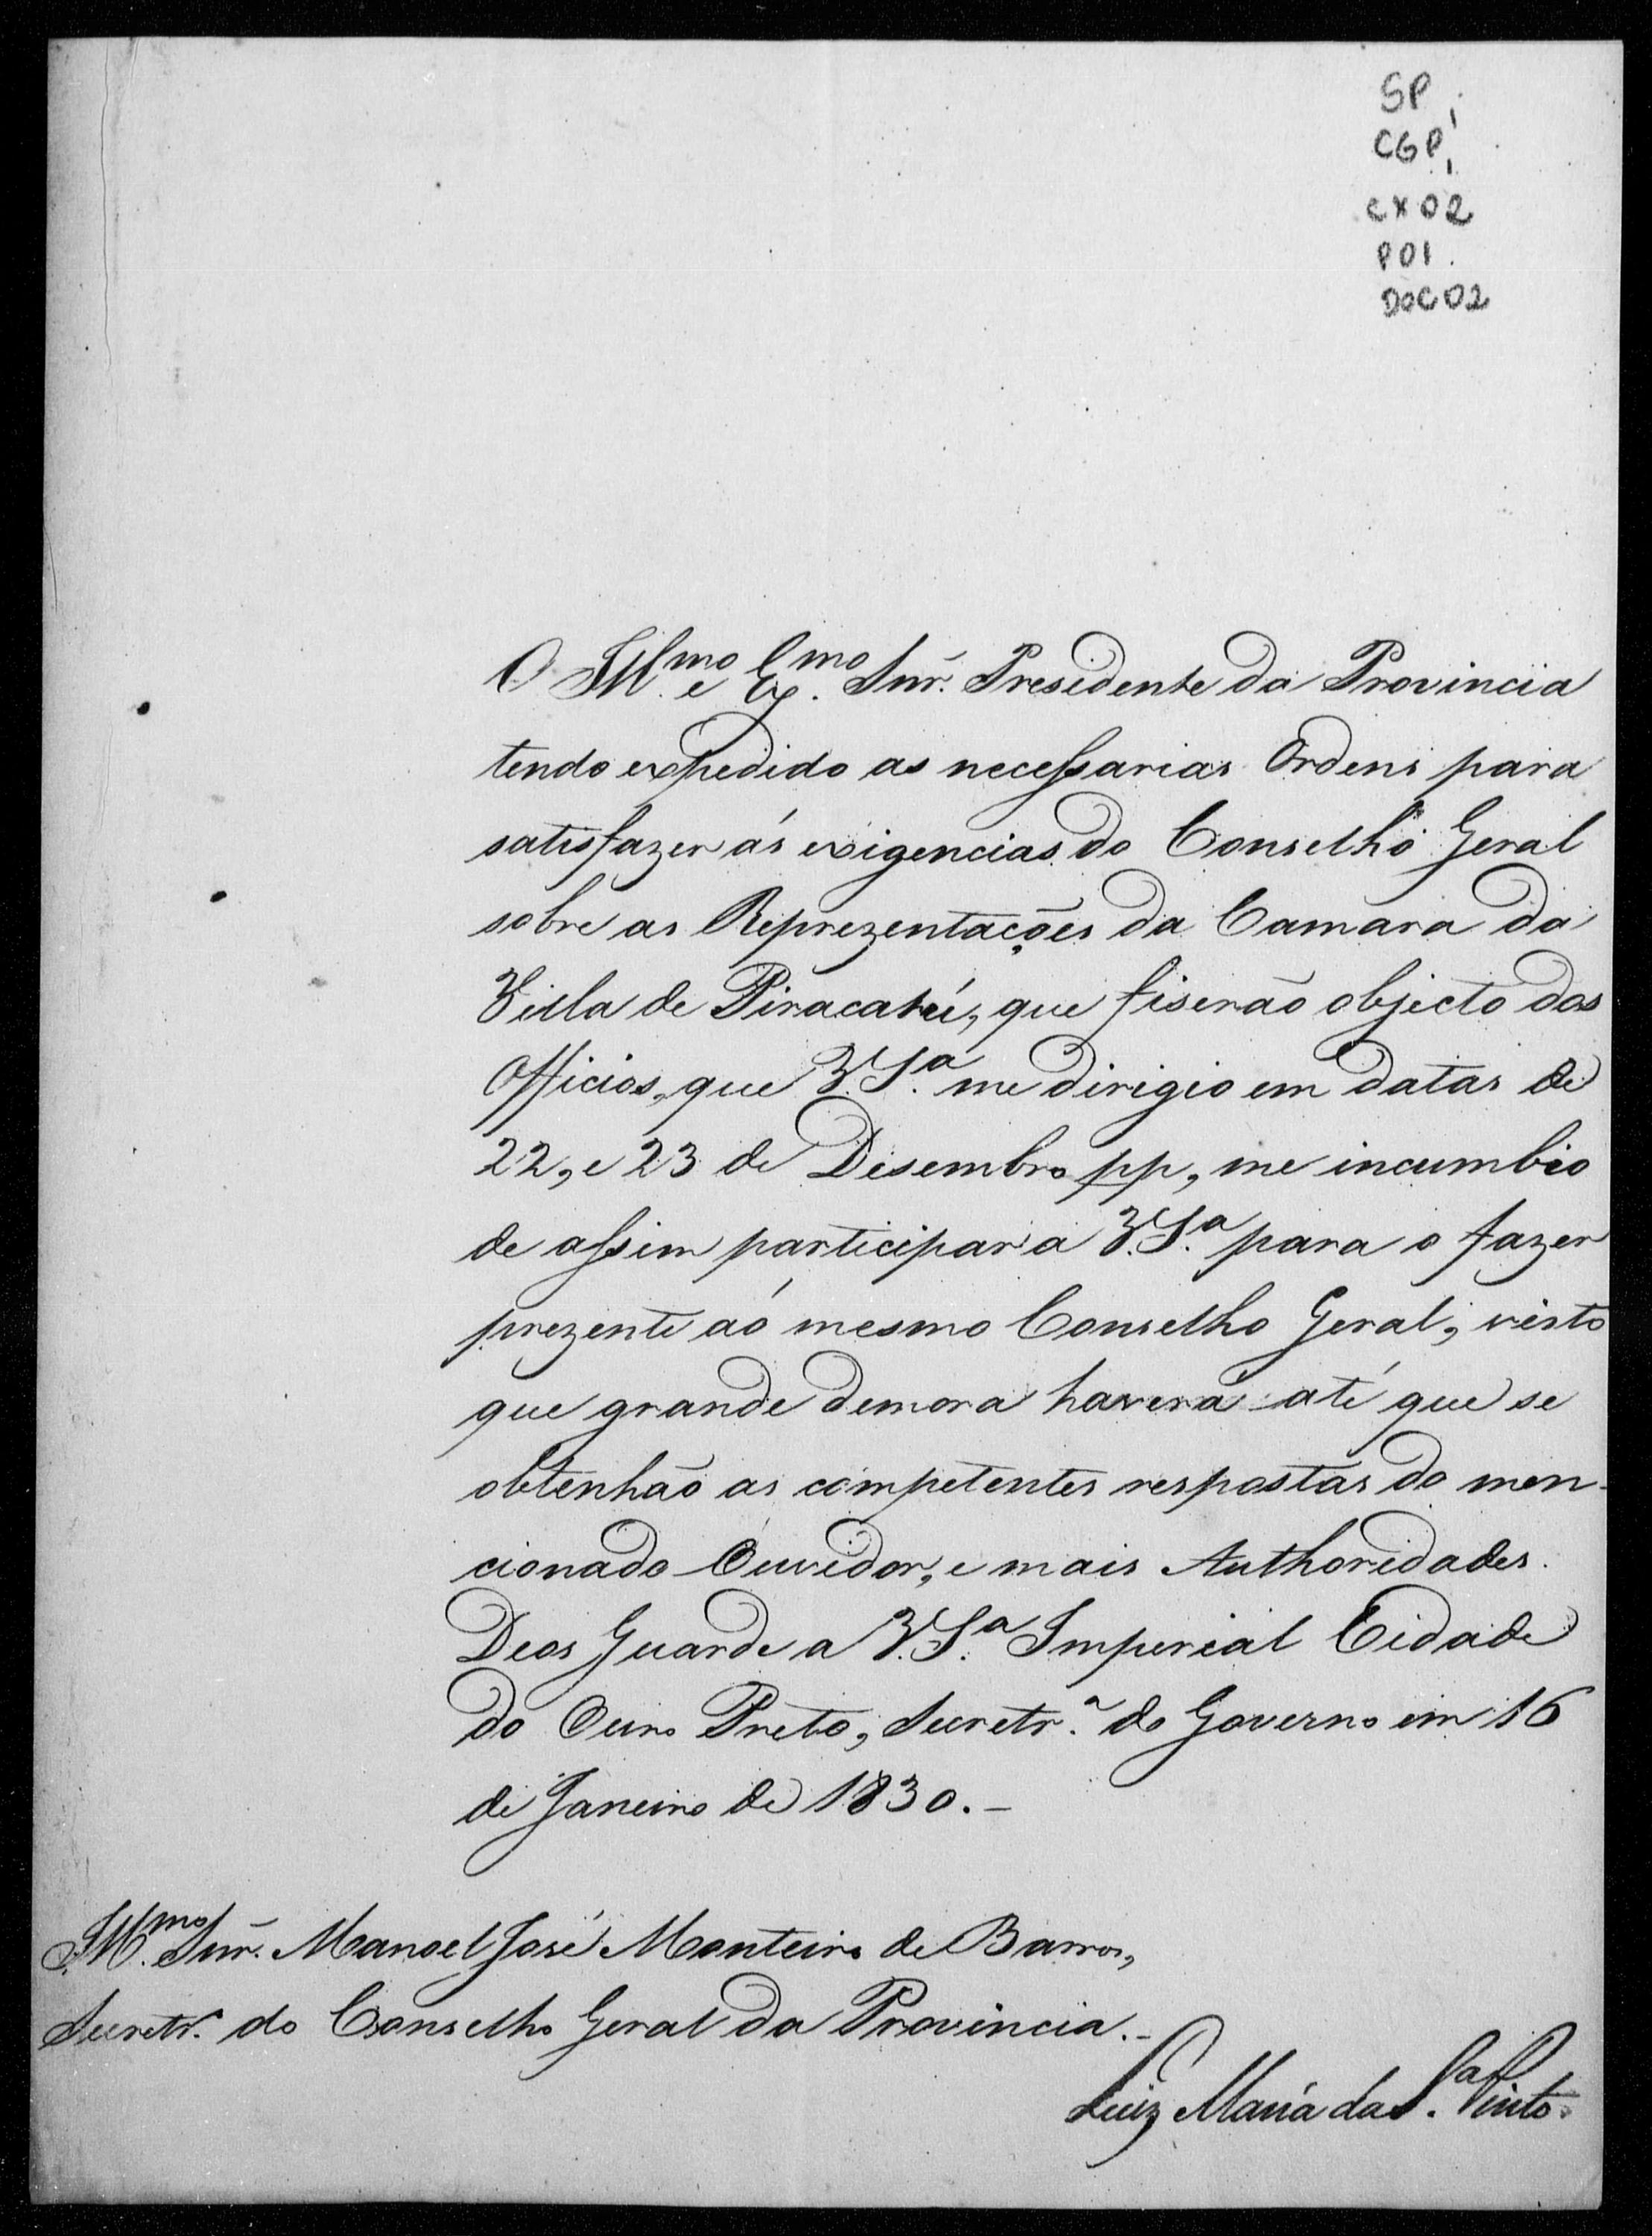 SP,
CGP,
CX02
P01.
DOC02
O Ill.mo e Ex.mo Snr. Presidente da Provincia
tendo expedido as necessarias Ordens para
satisfazer ás exigencias do Conselho Geral
sobre as Reprezentações da Camara da
Villa de Piracatú, que fiserão objecto dos
Officios, que V.S.a me dirigio em datas de
22, e 23 de Desembro pp, me incumbio
de assim participar a V.S.a para o fazer
prezente aó mesmo Conselho Geral, visto
que grande demora haverá até que se
obtenhão as competentes respostas do men-
cionado Ouvidor, e mais Authoridades.
Deos Guarde a V.S.a Imperial Cidade
do Ouro Preto, Secretr.a do Governo em 16
de Janeiro de 1830.-
Ill.mo Snr. Manoel José Monteiro de Barros,
Secretr. do Conselho Geral da Provincia.-
Luiz Maria da S.a Pinto